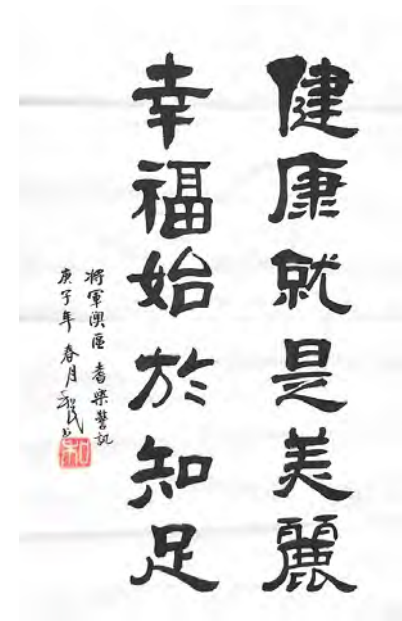 健康就是美麗
幸福始於知足
將軍澳區 耆樂警訊
庚子年 春月